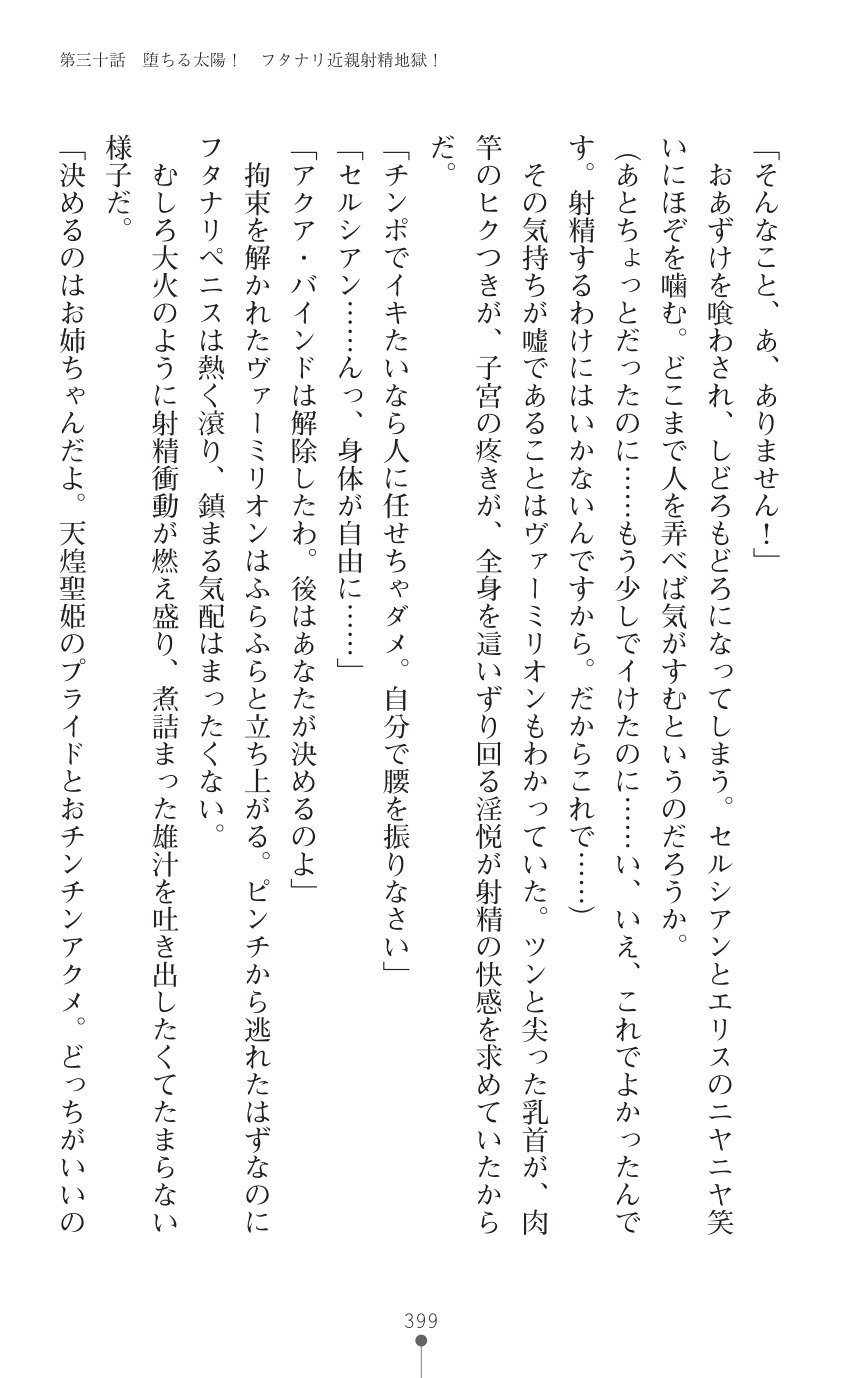 第三十話　堕ちる太陽！　フタナリ近親射精地獄！
「そんなこと、あ、ありません！」
　おあずけを喰わされ、しどろもどろになってしまう。セルシアンとエリスのニヤニヤ笑
いにほぞを噛む。どこまで人を弄べば気がすむというのだろうか。
（あとちょっとだったのに……もう少しでイけたのに……い、いえ、これでよかったんで
す。射精するわけにはいかないんですから。だからこれで……）
　その気持ちが嘘であることはヴァーミリオンもわかっていた。ツンと尖った乳首が、肉
竿のヒクつきが、子宮の疼きが、全身を這いずり回る淫悦が射精の快感を求めていたから
だ。
「チンポでイキたいなら人に任せちゃダメ。自分で腰を振りなさい」
「セルシアン……んっ、身体が自由に……」
「アクア・バインドは解除したわ。後はあなたが決めるのよ」
　拘束を解かれたヴァーミリオンはふらふらと立ち上がる。ピンチから逃れたはずなのに
フタナリペニスは熱く滾り、鎮まる気配はまったくない。
　むしろ大火のように射精衝動が燃え盛り、煮詰まった雄汁を吐き出したくてたまらない
様子だ。
「決めるのはお姉ちゃんだよ。天煌聖姫のプライドとおチンチンアクメ。どっちがいいの
399